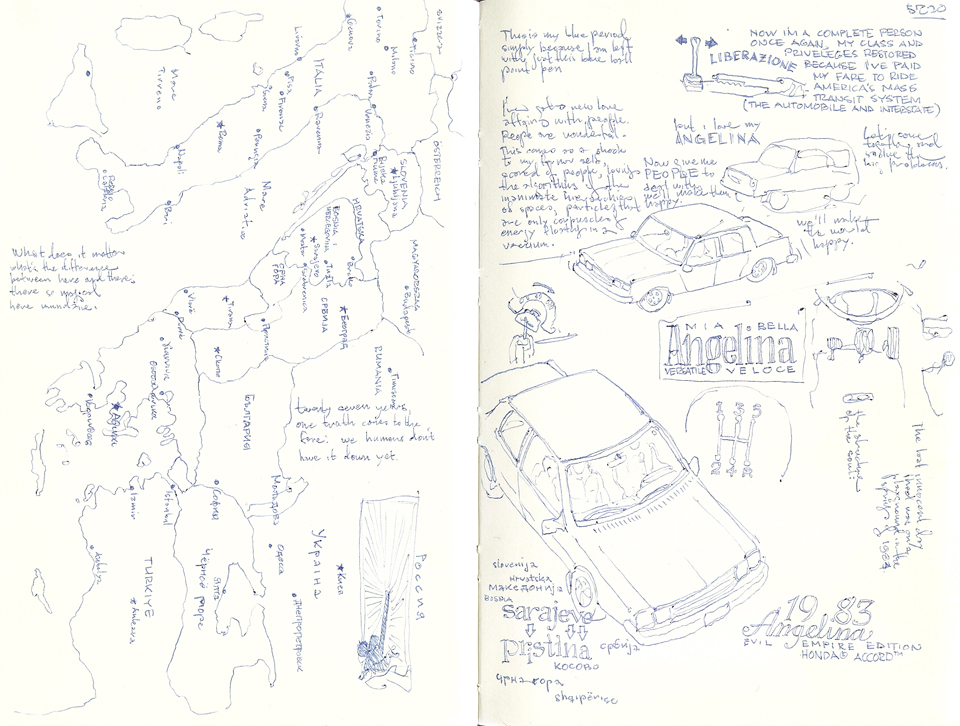 SVIZZERA
Milano
Torino
Genova
Livorno
ITALIA
Pisa
Firenze
Ravenna
Padova
Venezia
Roma
Perugia
Napoli
Bari
Reggio
Calabria
Mare
Tirreno
Mare
Adriatico
ÖSTERREICH
SLOVENIJA
Ljubljana
Rijeka
HRVATSKA
BOSNA I
HERCEGOVINA
Mostar
Sarajevo
Tuzla
Srebrenica
ЦРНА
ГОРА
СРБИЈА
Београд
MAGYARORSZÁG
Budapest
RUMANIA
Timisoara
Vlorë
Tirana
Скопје
БЪЛГАРИЯ
София
Молдова
Istanbul
Izmir
Antalya
TÜRKIYE
Ankara
Чёрное море
Ялта
Одесса
Україна
Киев
Днепропетровск
Россия
What does it matter
what's the difference
between here and there;
there so
here mundane.
twenty seven years,
one truth comes to the
fore: we humans don't
have it down yet.
5220
This is my blue period
simply because I'm left
with just this blue ball
point pen
I've got a new love
affair with people.
People are wonderful.
This comes as a shock
to my former self,
scared of people, loving
the algorithms of the
inanimate hierarchies
of spaces, particles that
are only corpuscles of
energy floating in a
vacuum.
LIBERAZIONE
NOW I'M A COMPLETE PERSON
ONCE AGAIN, MY CLASS AND
PRIVELEGES RESTORED
BECAUSE I'VE PAID
MY FARE TO RIDE
AMERICA'S MASS
TRANSIT SYSTEM
(THE AUTOMOBILE AND INTERSTATE)
but I love my
ANGELINA
Now give me
PEOPLE to
deal with,
we'll make them
happy.
Let's come
together and
value the
problems.
we'll make
the world
happy.
MIA BELLA
Angelina
VERSATILE VELOCE
the structure
of the soul:
The last innocent day
I had was on a
playground in the
spring of 1983
slovenija
Hrvatska
МАКЕДОНИЈА
BOSNA
sarajevo
Pristina
србија
КОСОВО
Црна гора
shqipërise
1983
Angelina
EVIL EMPIRE EDITION
HONDA® ACCORD™